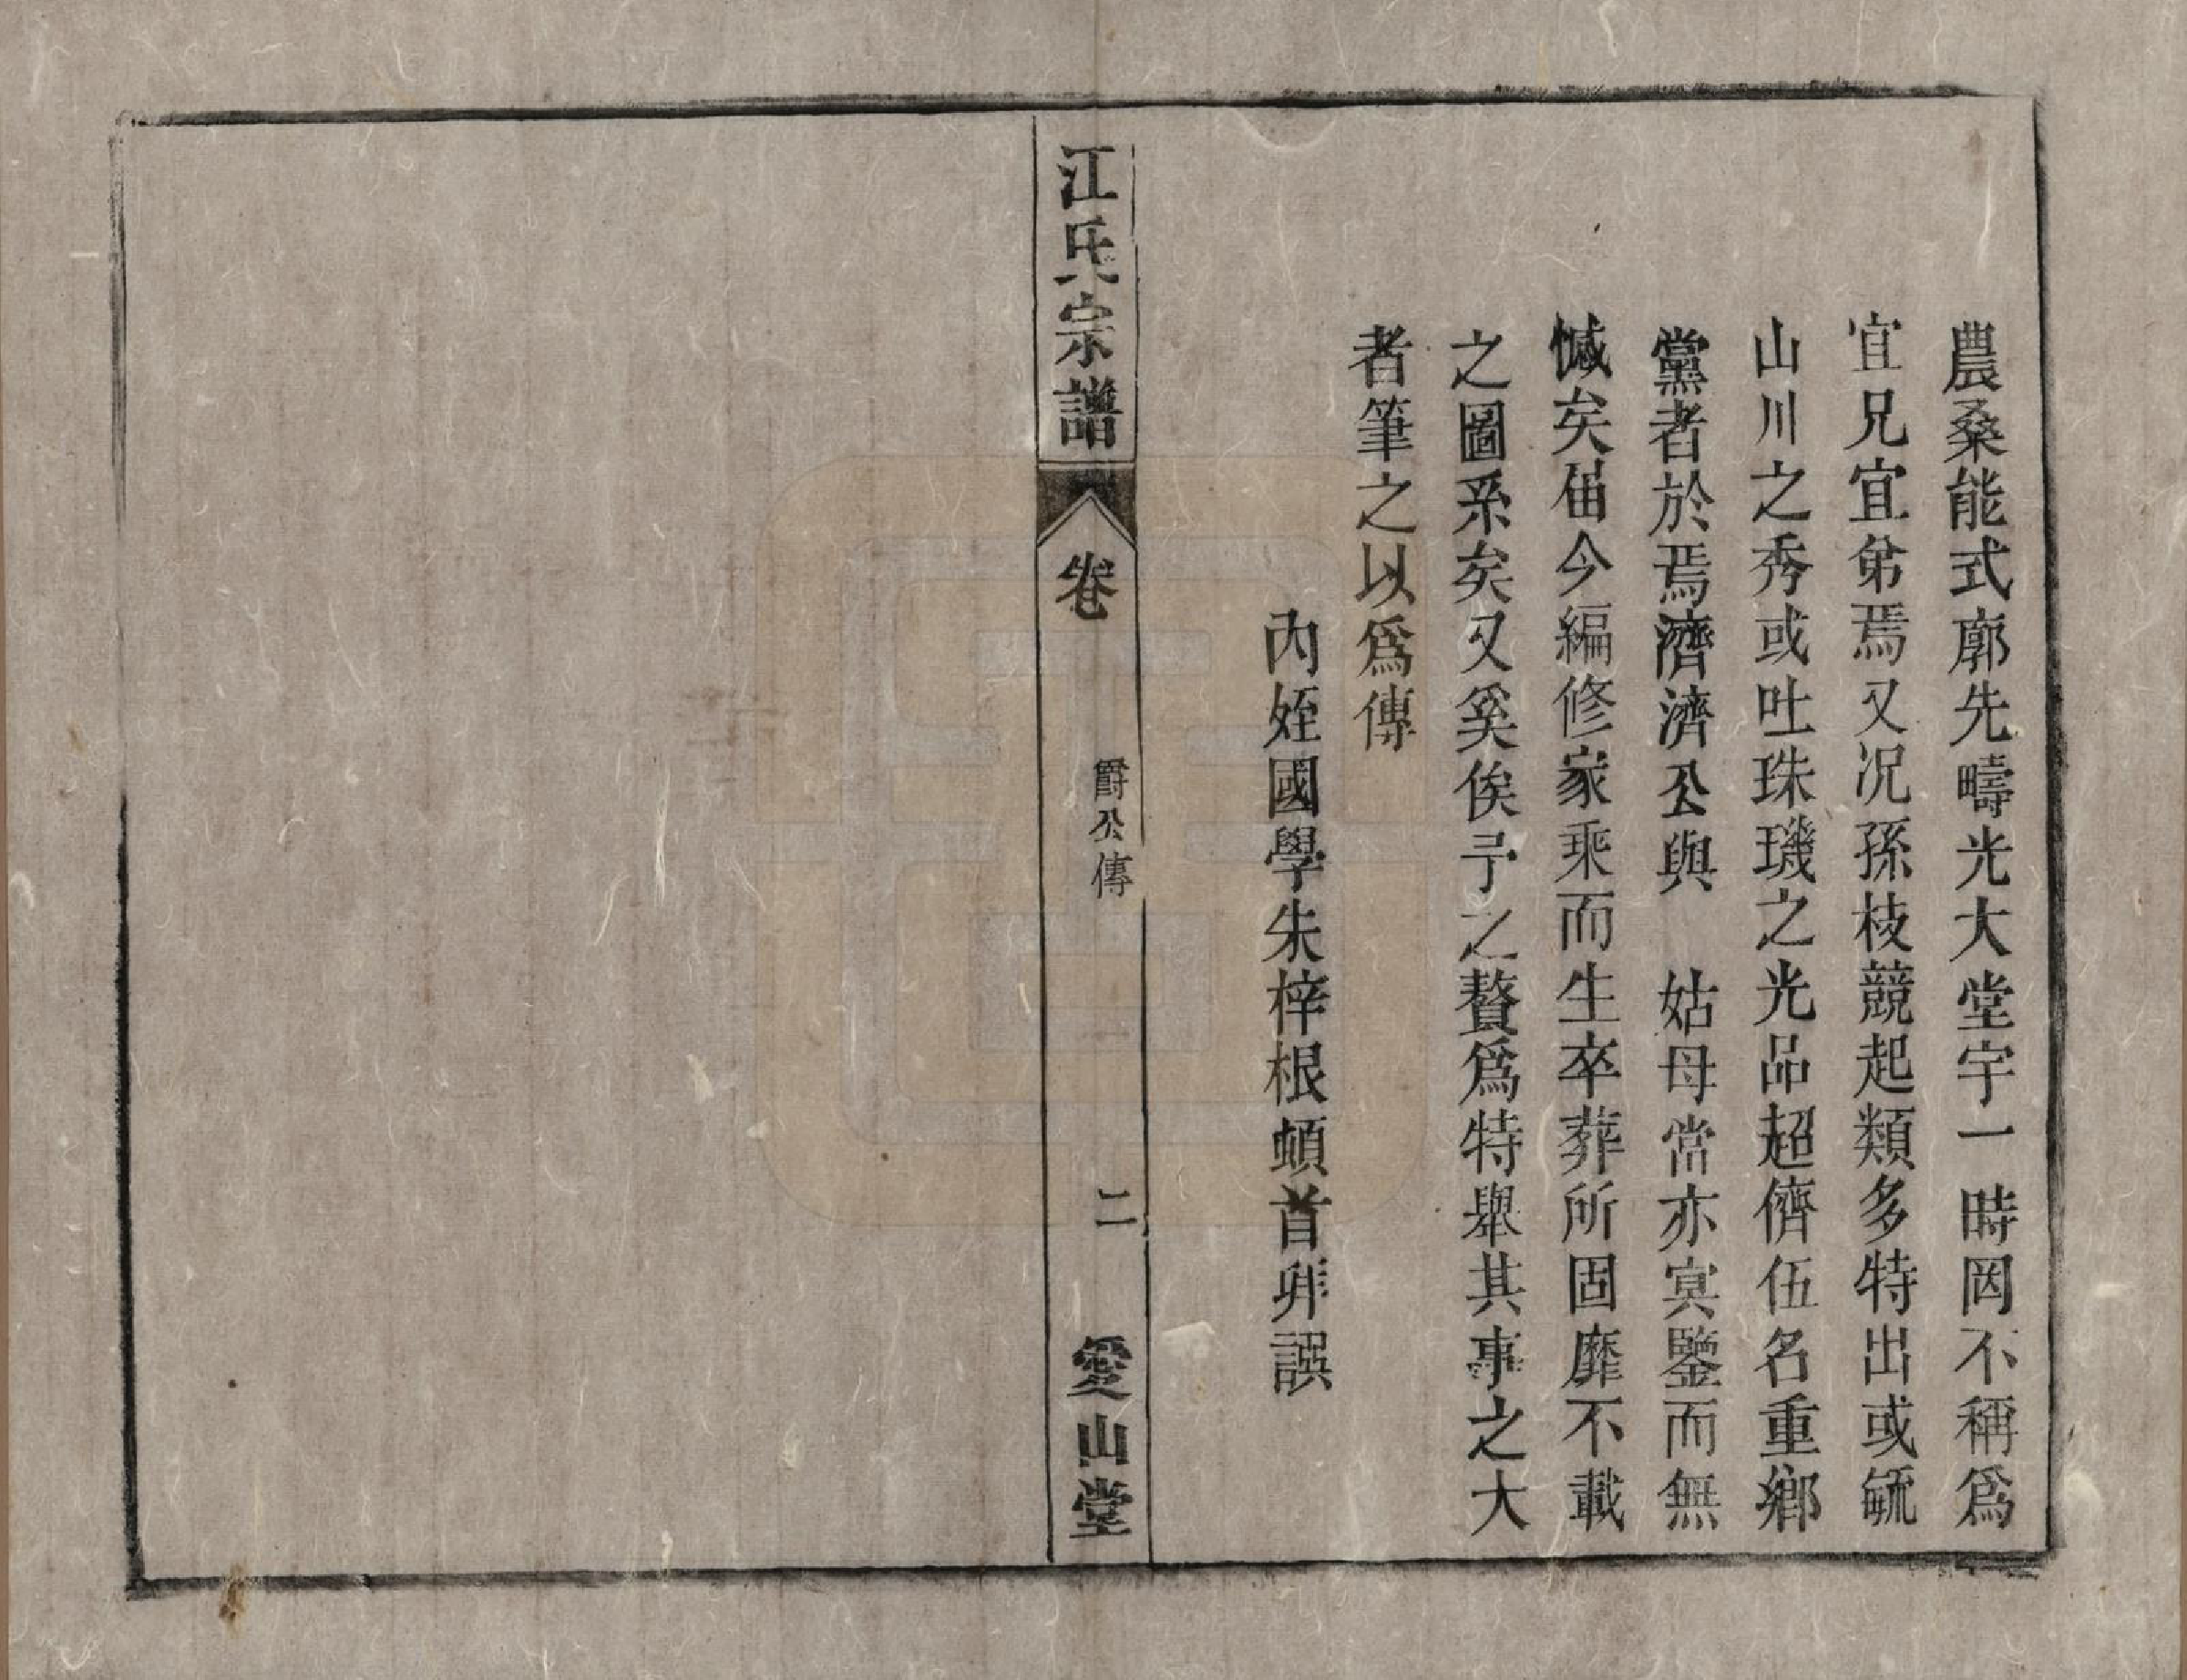 農桑能式廓先疇光大堂宇一時罔不稱爲
宜兄宜弟焉又况孫枝競起類多特出或毓
山川之秀或吐珠璣之光品超儕伍名重鄉
黨者於焉濟濟公與　姑母當亦冥鑒而無
憾矣届今編修家乘而生卒葬所固靡不載
之圖系矣又奚俟予之贅爲特舉其事之大
者筆之以爲傳
內姪國學朱梓根頓首拜譔
江氏宗譜
卷
爵公傳
二
愛山堂